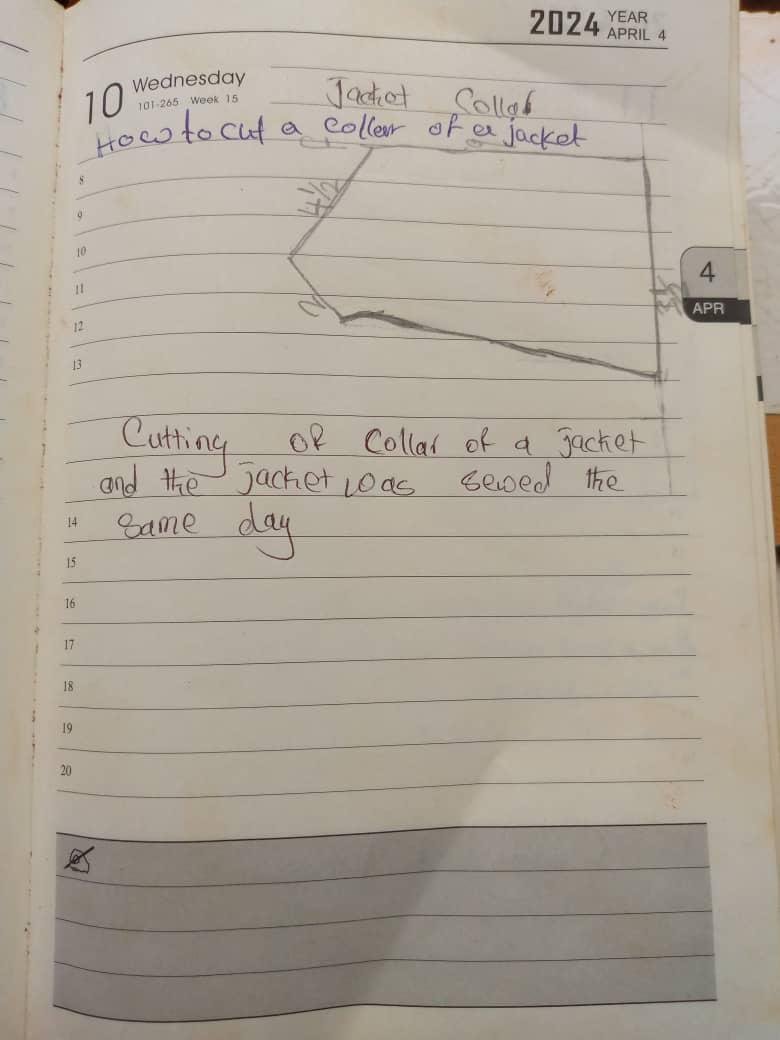 2024 YEAR
APRIL 4
10 Wednesday
101-265 Week 15
Jacket Collar
How to cut a collar of a jacket
8
4½
9
10
4
11
APR
2
12
13
Cutting of Collar of a jacket
and the jacket was sewed the
14 same day
15
16
17
18
19
20